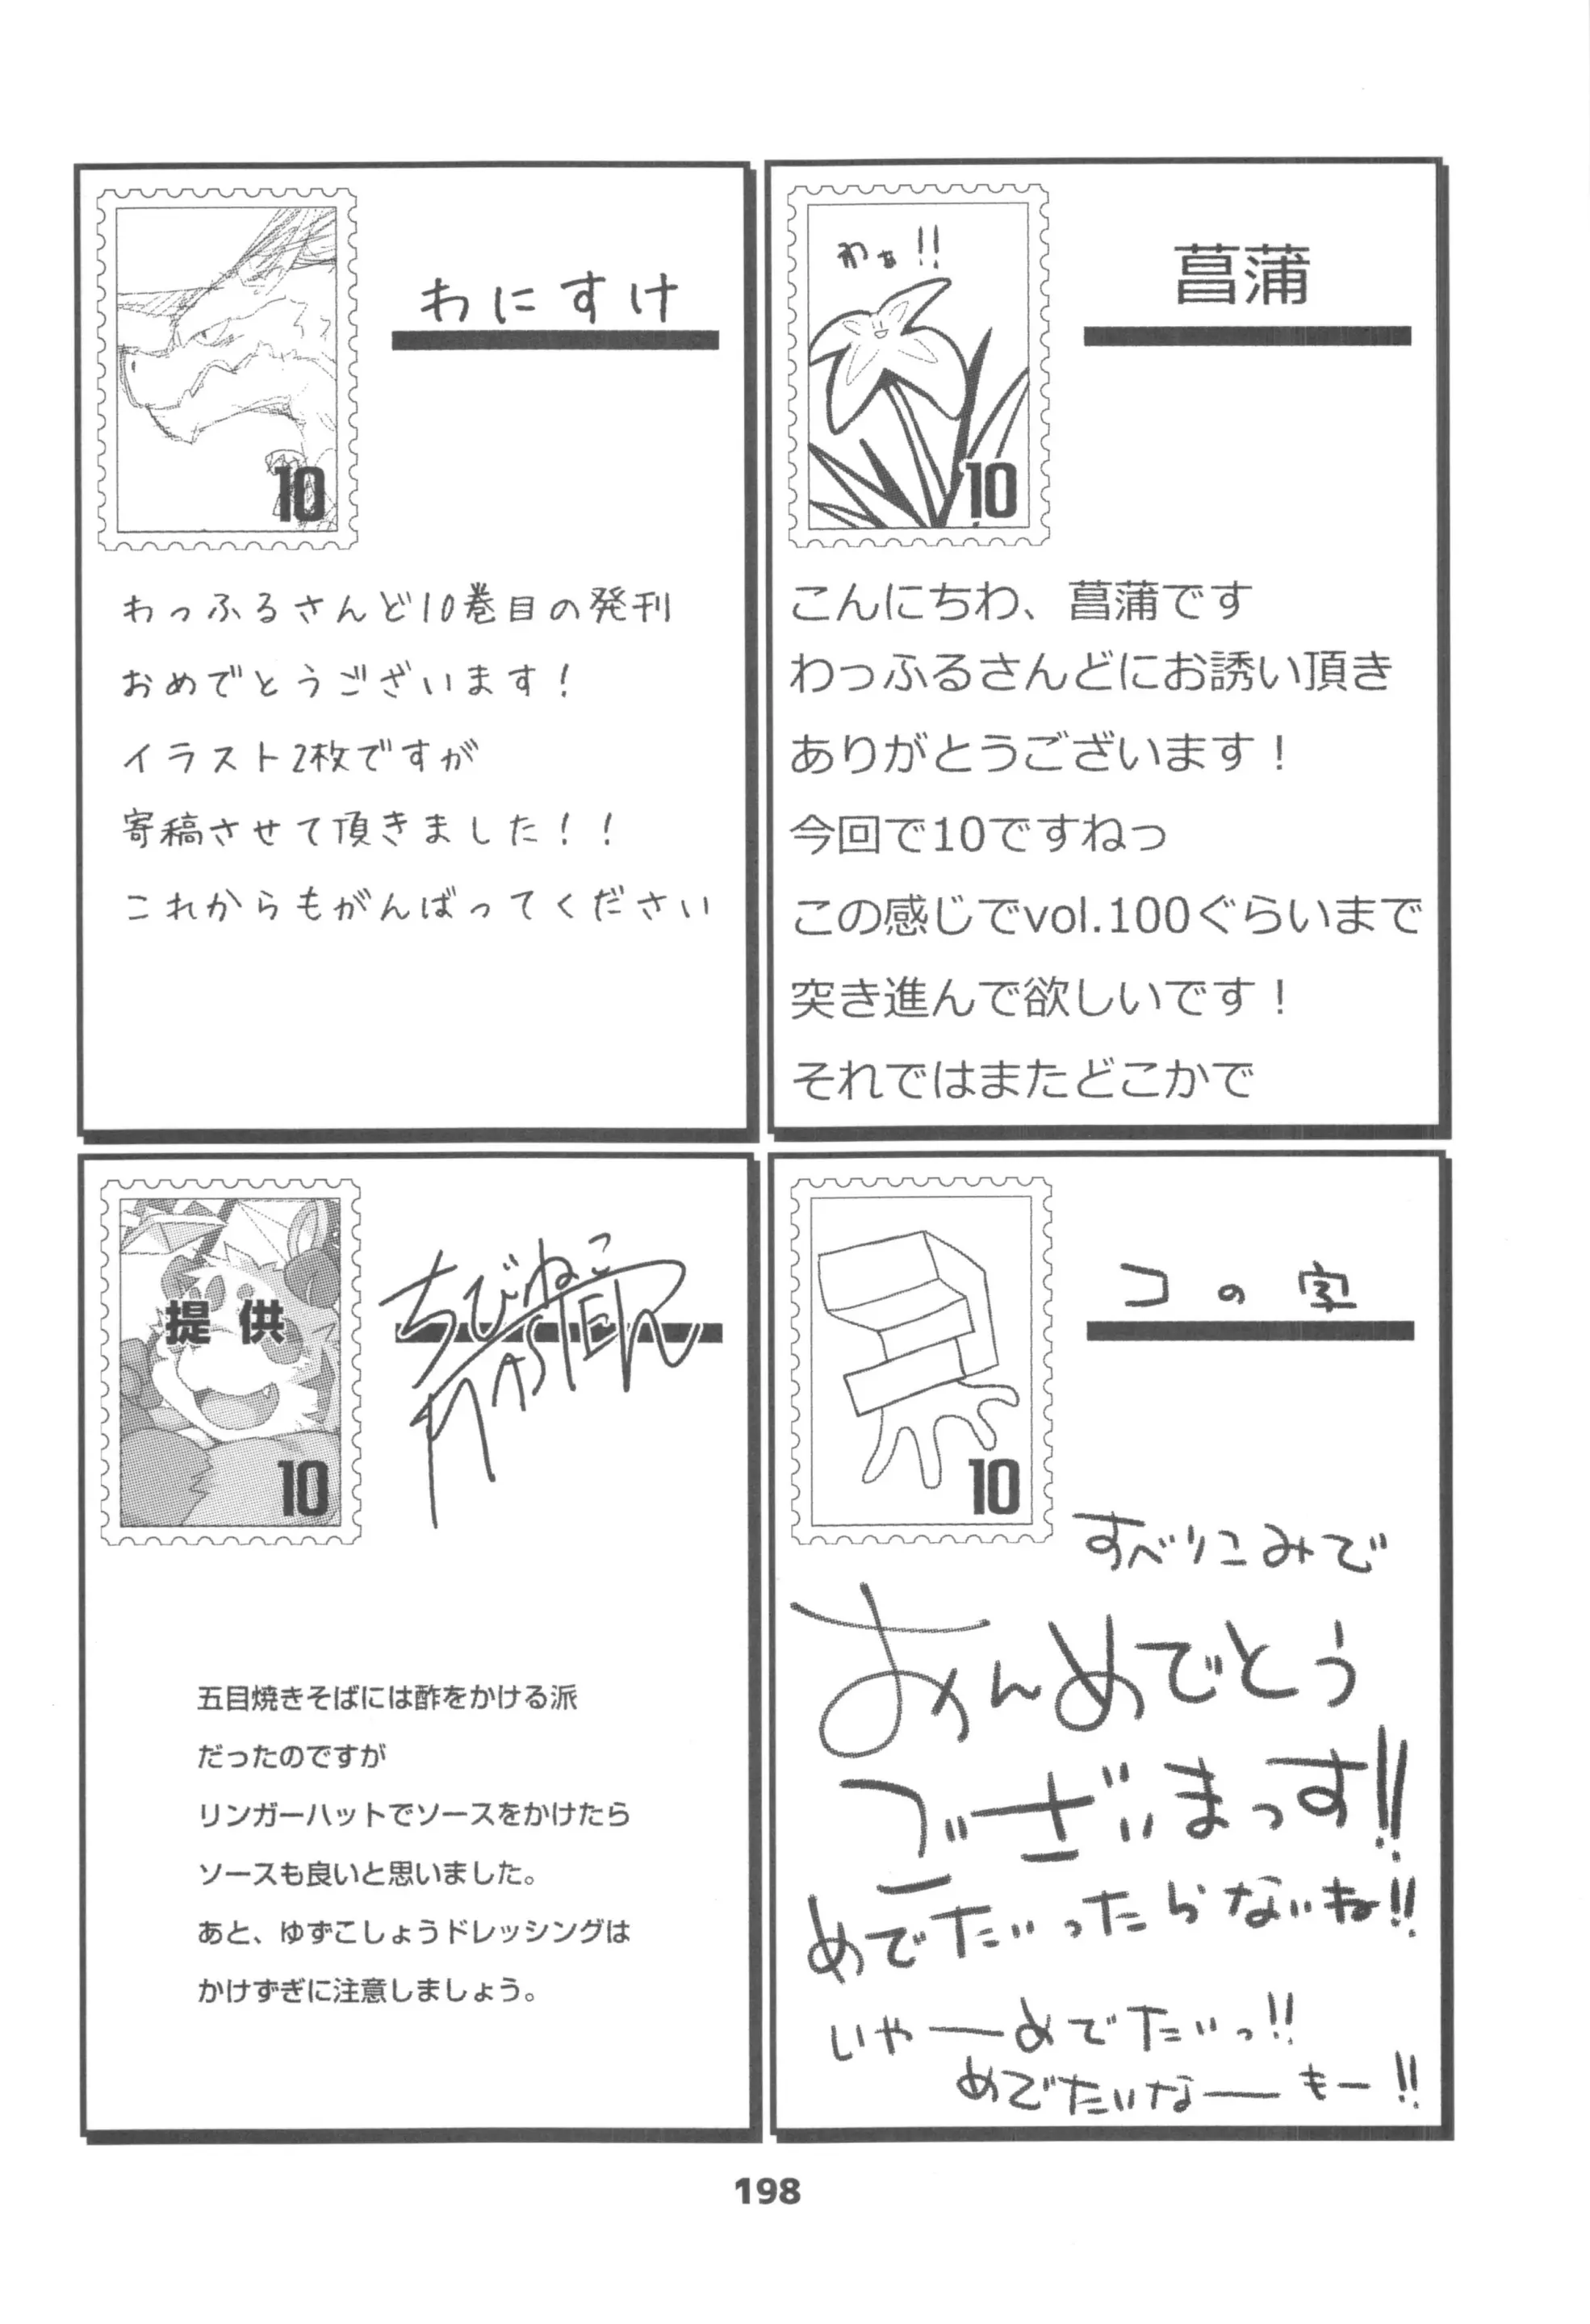 わにすけ
10
わっふるさんど10巻目の発刊
おめでとうございます！
イラスト2枚ですが
寄稿させて頂きました！！
これからもがんばってください
菖蒲
わぁ!!
10
こんにちわ、菖蒲です
わっふるさんどにお誘い頂き
ありがとうございます！
今回で10ですねっ
この感じでvol.100ぐらいまで
突き進んで欲しいです！
それではまたどこかで
ちびねこ
MASTER
提供
10
五目焼きそばには酢をかける派
だったのですが
リンガーハットでソースをかけたら
ソースも良いと思いました。
あと、ゆずこしょうドレッシングは
かけすぎに注意しましょう。
コの字
10
すべりこみで
おんめでとう
ございまっす!!
めでたいったらないね!!
いやーめでたいっ!!
めでたいなーもー!!
198